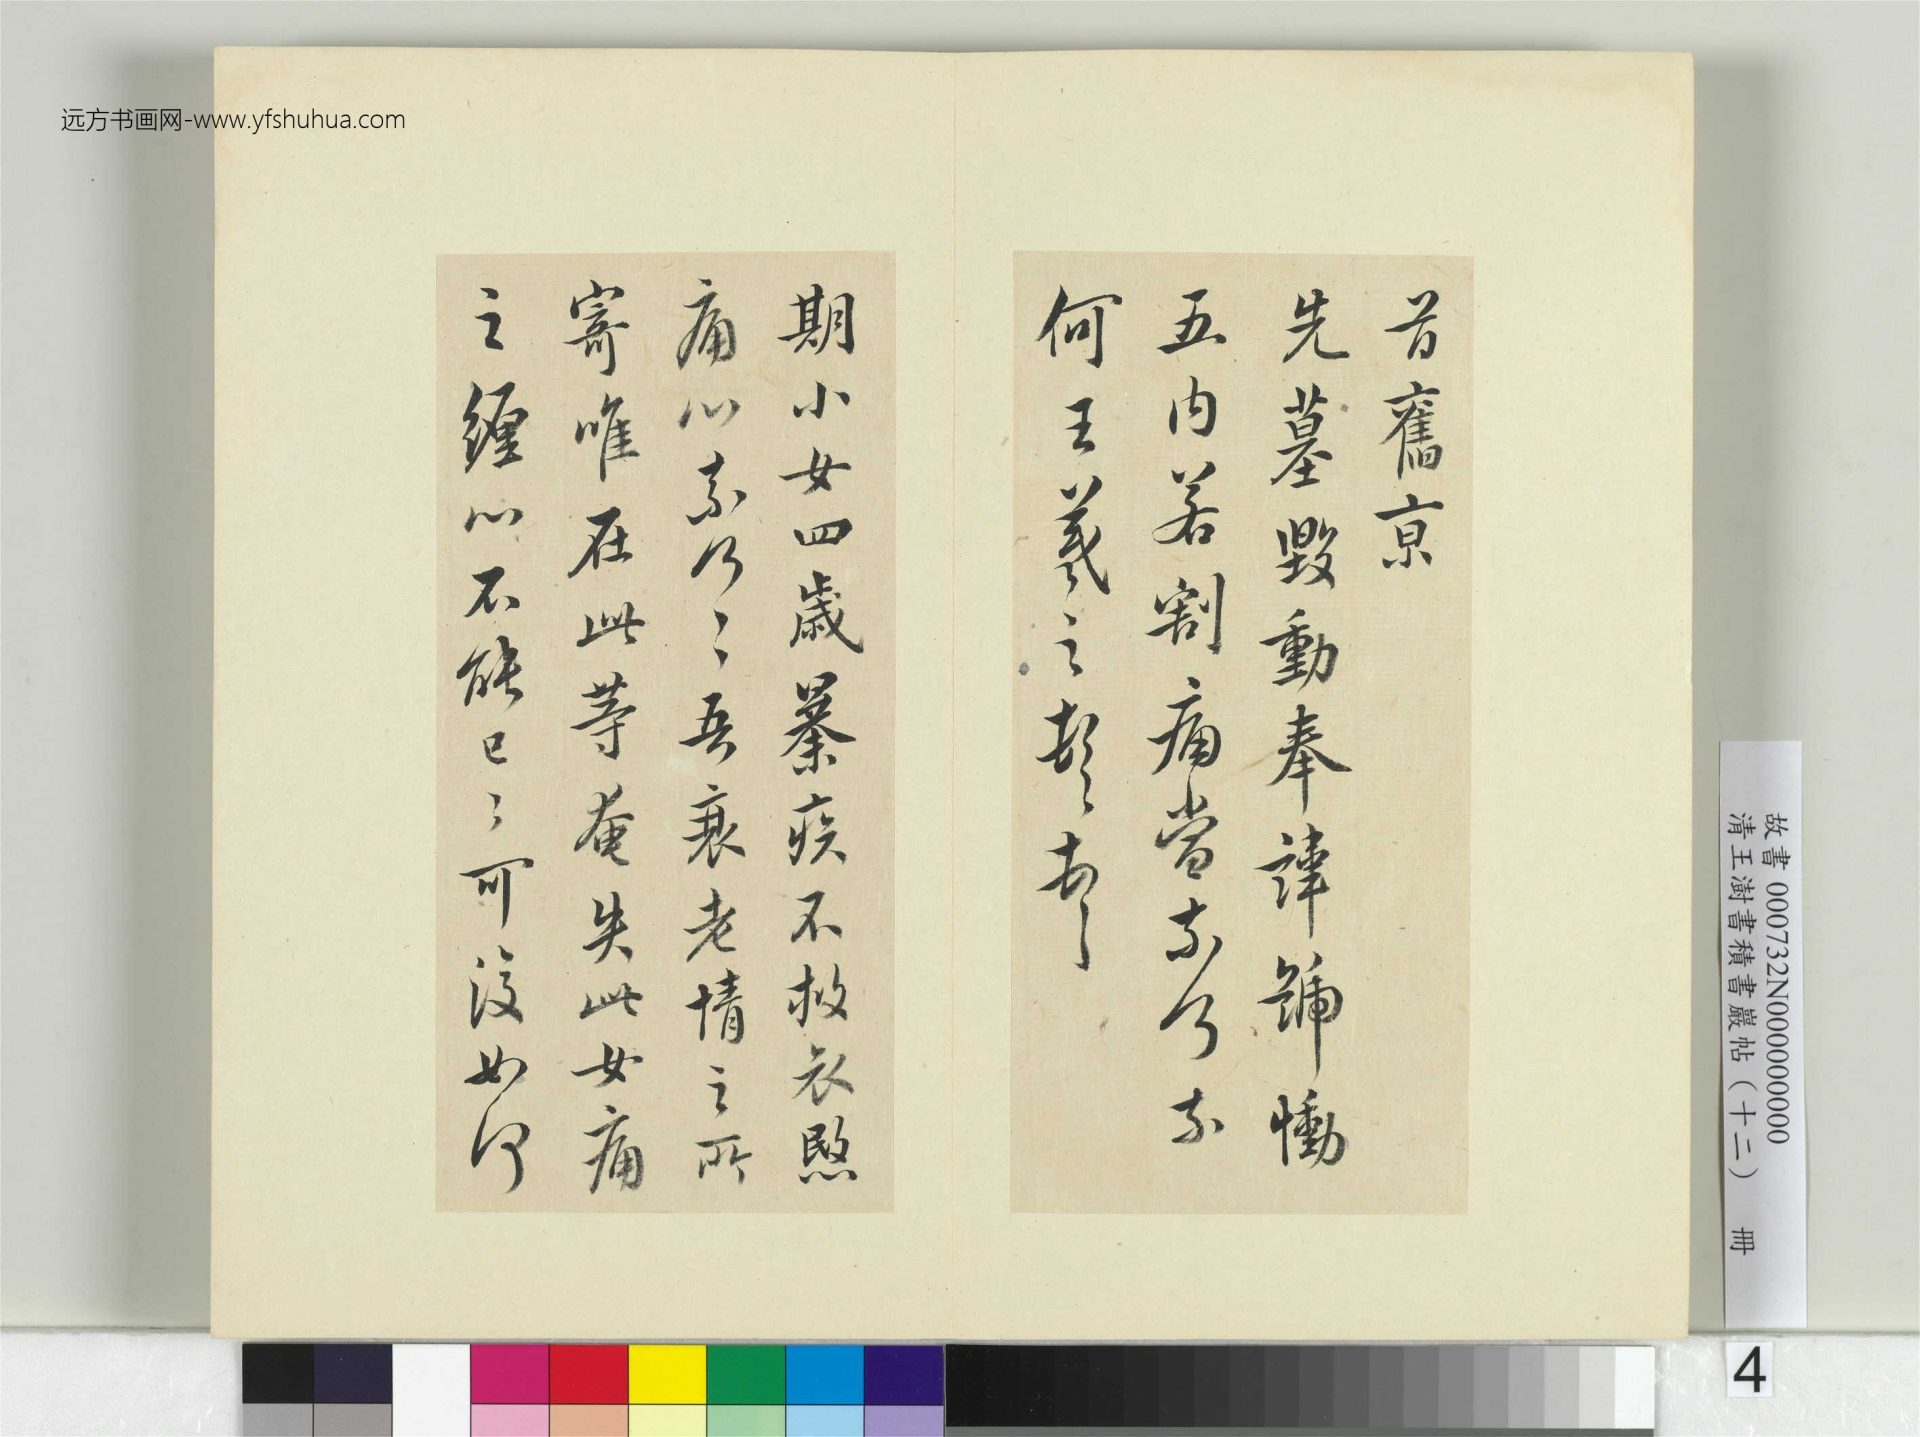 远方书画网-www.yfshuhua.com
首舊京
先墓毀動奉諱號慟
五内若割痛當奈何奈
何王羲之頓首頓首
期小女四歲暴疾不救哀愍
痛心奈何奈何吾衰老情之所
寄唯在此等奄失此女痛
之纏心不能已已可復如何
故書 000732N000000000
清王澍書積書巖帖(十二) 冊
4